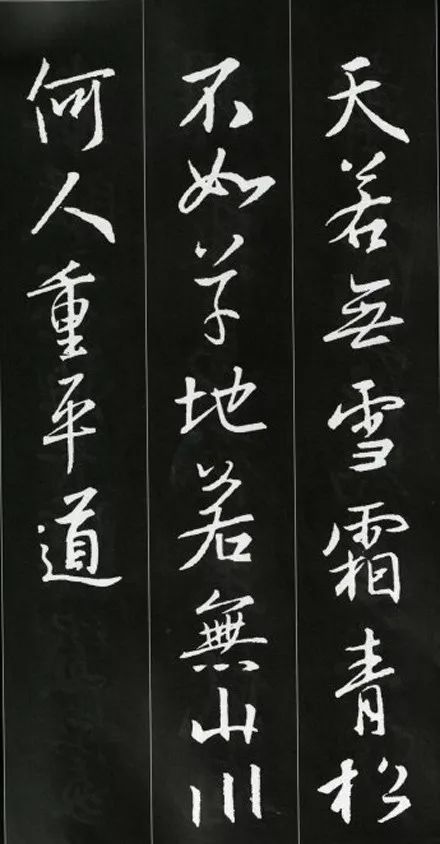 天若无雪霜青松
不如草地若無山川
何人重平道